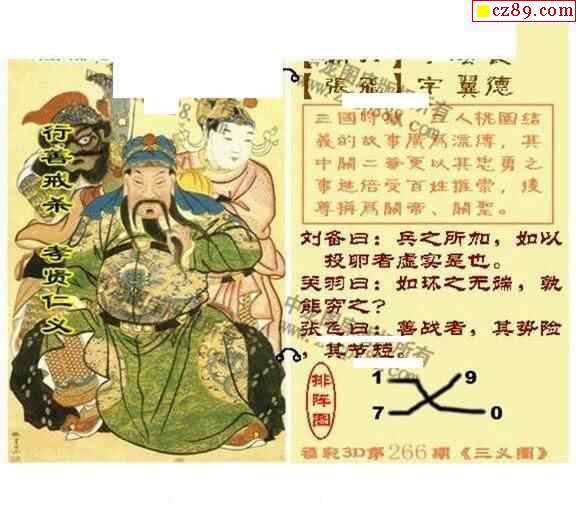 cz89.com
【張飛】字翼德
三國時代，三人桃園結
義的故事廣爲流傳，其
中關二爺更以其忠勇之
事迹倍受百姓推崇，後
尊稱爲關帝、關聖。
刘备曰：兵之所加，如以
投卵者虚实是也。
关羽曰：如环之无端，孰
能穷之？
张飞曰：善战者，其势险
，其节短。
行善戒杀 孝贤仁义
排阵图
1 9
7 0
福彩3D第266期《三义图》